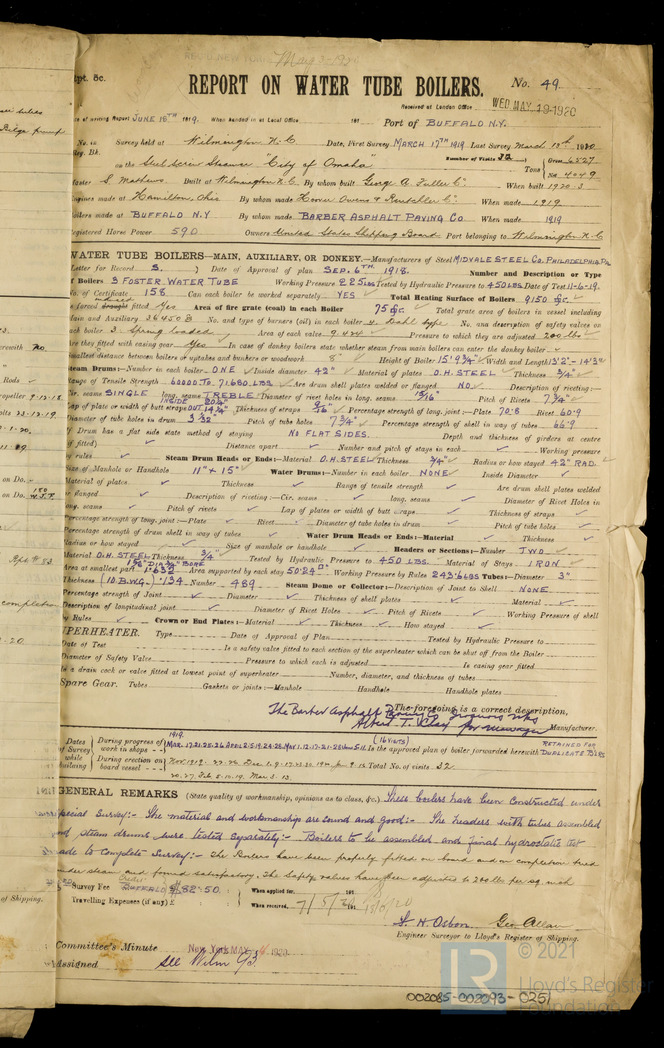 May 3-1920
Rpt. &c.
REPORT ON WATER TUBE BOILERS.
No. 49.
Received at London Office WED. MAY 19-1920
of writing Report JUNE 18TH 1919. When handed in at Local Office 191 Port of BUFFALO N.Y.
No. in Survey held at Wilmington N.C. Date, First Survey MARCH 17TH 1919 Last Survey March 13th 1920
Reg. Bk.
Number of Visits 32
on the Steel Screw Steamer "City of Omaha" Tons Gross 6527 Net 4049
Master S. Mathews Built at Wilmington N.C. By whom built George A. Fuller Co. When built 1920-3
Engines made at Hamilton, Ohio By whom made Hooven Owens & Rentschler Co. When made 1919
Boilers made at BUFFALO N.Y By whom made BARBER ASPHALT PAVING Co When made 1919
Registered Horse Power 590 Owners United States Shipping Board Port belonging to Wilmington N.C
WATER TUBE BOILERS—MAIN, AUXILIARY, OR DONKEY.—Manufacturers of Steel MIDVALE STEEL Co. PHILADELPHIA PA
Letter for Record S. Date of Approval of plan SEP. 6TH 1918. Number and Description or Type
of Boilers 3 FOSTER WATER TUBE Working Pressure 225 LBS Tested by Hydraulic Pressure to 450 LBS Date of Test 11-6-19.
No. of Certificate 158 Can each boiler be worked separately YES Total Heating Surface of Boilers 9150
forced draught fitted Yes Area of fire grate (coal) in each Boiler 75 Total grate area of boilers in vessel including
Main and Auxiliary No. and type of burners (oil) in each boiler 4. Dahl type No. and description of safety valves on
each boiler 3. Spring loaded Area of each valve Pressure to which they are adjusted 200 lbs
Are they fitted with casing gear Yes In case of donkey boilers state whether steam from main boilers can enter the donkey boiler
Smallest distance between boilers or uptakes and bunkers or woodwork 8" Height of Boiler 15' 9 3/4" Width and Length 13' 2" - 14' 3"
Steam Drums:—Number in each boiler ONE Inside diameter 42" Material of plates O.H. STEEL Thickness 3/4"
Range of Tensile Strength 60000 TO 71680 LBS Are drum shell plates welded or flanged NO Description of riveting:—
Cir. seams SINGLE long. seams TREBLE Diameter of rivet holes in long. seams 15/16" Pitch of Rivets 7 3/4"
Lap of plate or width of butt straps INSIDE 20 1/4" OUT 14 3/4" Thickness of straps 9/16" Percentage strength of long. joint:—Plate 70.8 Rivet 60.9
Diameter of tube holes in drum 3 1/32" Pitch of tube holes 7 3/4" Percentage strength of shell in way of tubes 66.9
If Drum has a flat side state method of staying NO FLAT SIDES. Depth and thickness of girders at centre
(if fitted) Distance apart Number and pitch of stays in each Working pressure
by rules Steam Drum Heads or Ends:—Material O.H. STEEL Thickness 3/4" Radius or how stayed 42" RAD.
Size of Manhole or Handhole 11" + 15" Water Drums:—Number in each boiler NONE Inside Diameter
Material of plates Thickness Range of tensile strength Are drum shell plates welded
or flanged Description of riveting:—Cir. seams long. seams Diameter of Rivet Holes in
long. seams Pitch of rivets Lap of plates or width of butt straps Thickness of straps
Percentage strength of long. joint:—Plate Rivet Diameter of tube holes in drum Pitch of tube holes
Percentage strength of drum shell in way of tubes Water Drum Heads or Ends:—Material Thickness
Radius or how stayed Size of manhole or handhole Headers or Sections:—Number TWO
Material O.H. STEEL Thickness 3/4" Tested by Hydraulic Pressure to 450 LBS. Material of Stays IRON
Area at smallest part 1.632 Area supported by each stay 50.24 Working Pressure by Rules 243.6 LBS Tubes:—Diameter 3"
Thickness (10 B.W.G.) .134 Number 489. Steam Dome or Collector:—Description of Joint to Shell NONE
Percentage strength of Joint Diameter Thickness of shell plates Material
Description of longitudinal joint Diameter of Rivet Holes Pitch of Rivets Working Pressure of shell
by Rules Crown or End Plates:—Material Thickness How stayed
SUPERHEATER. Type Date of Approval of Plan Tested by Hydraulic Pressure to
Date of Test Is a safety valve fitted to each section of the superheater which can be shut off from the Boiler
Diameter of Safety Valve Pressure to which each is adjusted Is easing gear fitted
Is a drain cock or valve fitted at lowest point of superheater Number, diameter, and thickness of tubes
Spare Gear. Tubes Gaskets or joints:—Manhole Handhole Handhole plates
The foregoing is a correct description,
The Barber Asphalt Paving Co
Manufacturer.
Dates of Survey while building
During progress of work in shops 1919. MAR. 17.21.25.26 (16 VISITS) Is the approved plan of boiler forwarded herewith RETAINED FOR DUPLICATE BLRS
During erection on board vessel Total No. of visits 32
20.27 Feb 5.10.19. Mar 3.13.
GENERAL REMARKS (State quality of workmanship, opinions as to class, &c.) These boilers have been constructed under
special Survey:- The material and workmanship are sound and good:- The headers with tubes assembled
and steam drums were tested separately:- Boilers to be assembled and final hydrostatic test
made to complete Survey:- The Boilers have been properly fitted on board and on completion tried
under steam and found satisfactory. The Safety valves have been adjusted to 200 lbs per sq. inch
Survey Fee BUFFALO $82.50. When applied for, 191
Travelling Expenses (if any) £ When received,
S. H. Osbon. Geo Allan
Engineer Surveyor to Lloyd's Register of Shipping.
Committee's Minute New York MAY 4 1920
Assigned See Wilm 93
© 2021
Lloyd's Register
Foundation
002085-002093-0251